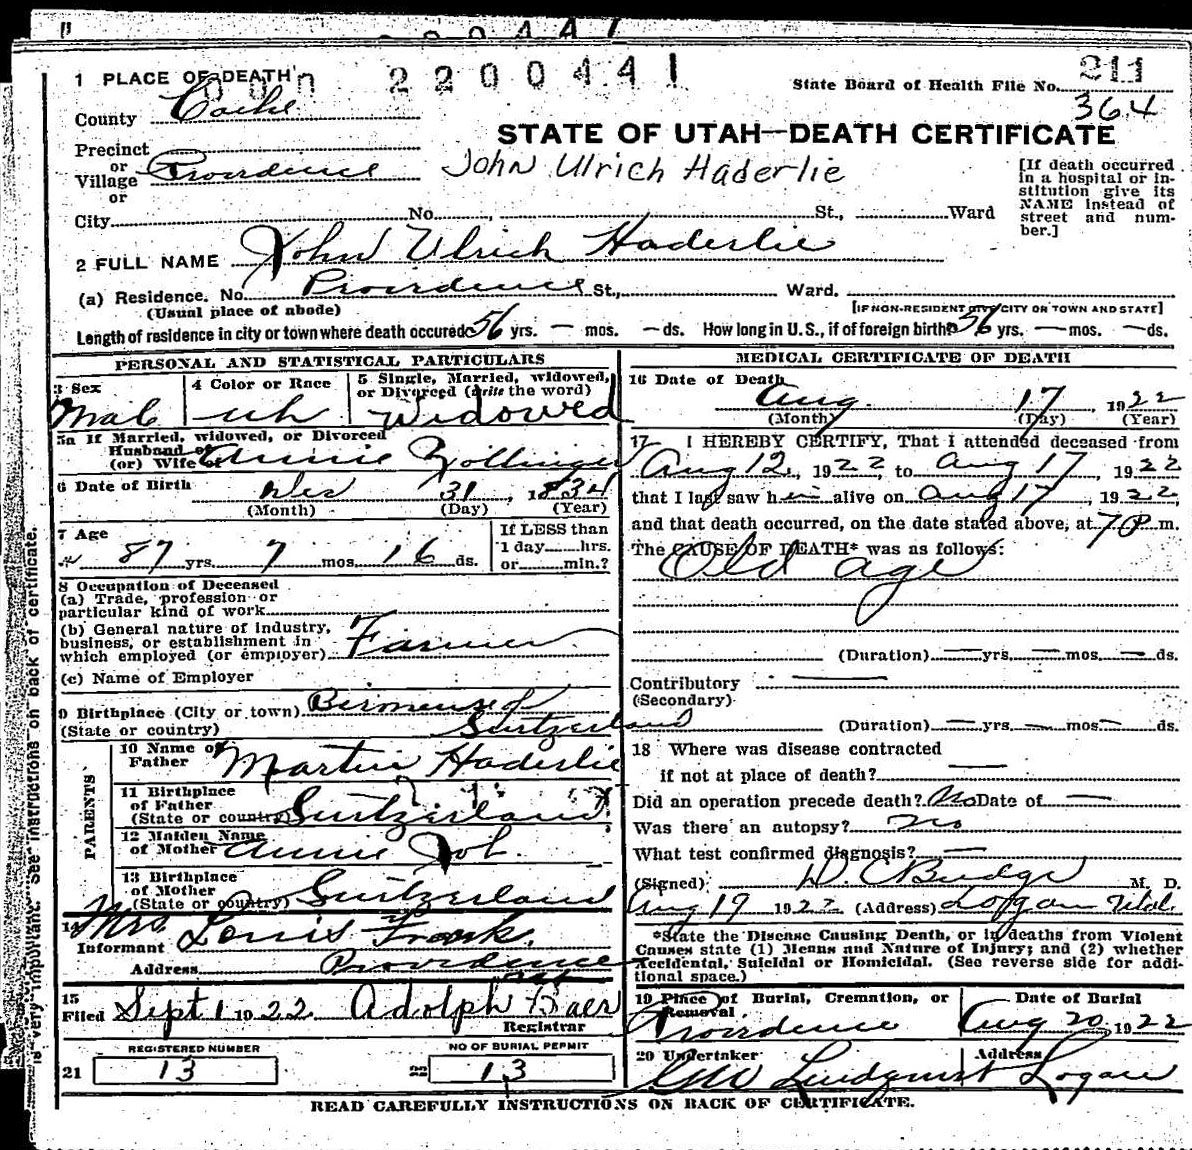 220044
1 PLACE OF DEATH
000 2200441
State Board of Health File No. 211
364
County Cache
STATE OF UTAH—DEATH CERTIFICATE
Precinct
or
Village Providence
or
John Ulrich Haderlie
[If death occurred
in a hospital or in-
stitution give its
NAME instead of
street and num-
ber.]
City No. , St., Ward
2 FULL NAME John Ulrich Haderlie
(a) Residence. No. Providence St., Ward.
(Usual place of abode)
[IF NON-RESIDENT GIVE CITY OR TOWN AND STATE]
Length of residence in city or town where death occured 56 yrs. — mos. — ds. How long in U.S., if of foreign birth? 56 yrs. — mos. — ds.
PERSONAL AND STATISTICAL PARTICULARS
3 Sex
Male
4 Color or Race
wh
5 Single, Married, widowed,
or Divorced (write the word)
Widowed
5a If Married, widowed, or Divorced
Husband of
(or) Wife of Annie Zollinger
6 Date of Birth Dec 31, 1834
(Month) (Day) (Year)
7 Age
87 yrs. 7 mos. 16 ds.
If LESS than
1 day hrs.
or min.?
8 Occupation of Deceased
(a) Trade, profession or
particular kind of work
(b) General nature of industry,
business, or establishment in
which employed (or employer) Farmer
(c) Name of Employer
9 Birthplace (City or town)
(State or country) Switzerland
PARENTS
10 Name of
Father Martin Haderlie
11 Birthplace
of Father
(State or country) Switzerland
12 Maiden Name
of Mother Annie Tob.
13 Birthplace
of Mother
(State or country) Switzerland
14 Mrs. Louis Frank.
Informant
Address Providence
15
Filed Sept 1 1922 Adolph Baer
Registrar
REGISTERED NUMBER
21 13
NO OF BURIAL PERMIT
22 13
MEDICAL CERTIFICATE OF DEATH
16 Date of Death
Aug. 17, 1922
(Month) (Day) (Year)
17 I HEREBY CERTIFY, That I attended deceased from
Aug 12, 1922, to Aug 17, 1922
that I last saw him alive on Aug 17, 1922,
and that death occurred, on the date stated above, at 7 P. m.
The CAUSE OF DEATH* was as follows:
Old age
(Duration) — yrs. — mos. — ds.
Contributory —
(Secondary)
(Duration) — yrs. — mos — ds.
18 Where was disease contracted
if not at place of death? —
Did an operation precede death? No Date of —
Was there an autopsy? no
What test confirmed diagnosis? —
(Signed) D. C. Budge M. D.
Aug 19 1922 (Address) Logan Utah.
*State the Disease Causing Death, or in deaths from Violent
Causes state (1) Means and Nature of Injury; and (2) whether
Accidental, Suicidal or Homicidal. (See reverse side for addi-
tional space.)
19 Place of Burial, Cremation, or
Removal
Providence
Date of Burial
Aug 20, 1922
20 Undertaker
Lindquist
Address
Logan
READ CAREFULLY INSTRUCTIONS ON BACK OF CERTIFICATE.
is very important. See instructions on back of certificate.